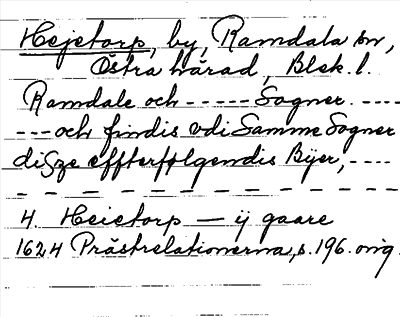 Hejetorp, by, Ramdala sn,
Östra härad, Blek. l.
Ramdale och ----- Sogner. ----
--- och findis vdi Samme Sogner
disze effterfølgendis Bÿer, ----
4. Heietorp — ij gaare
1624 Prästrelationerna, s. 196. orig.